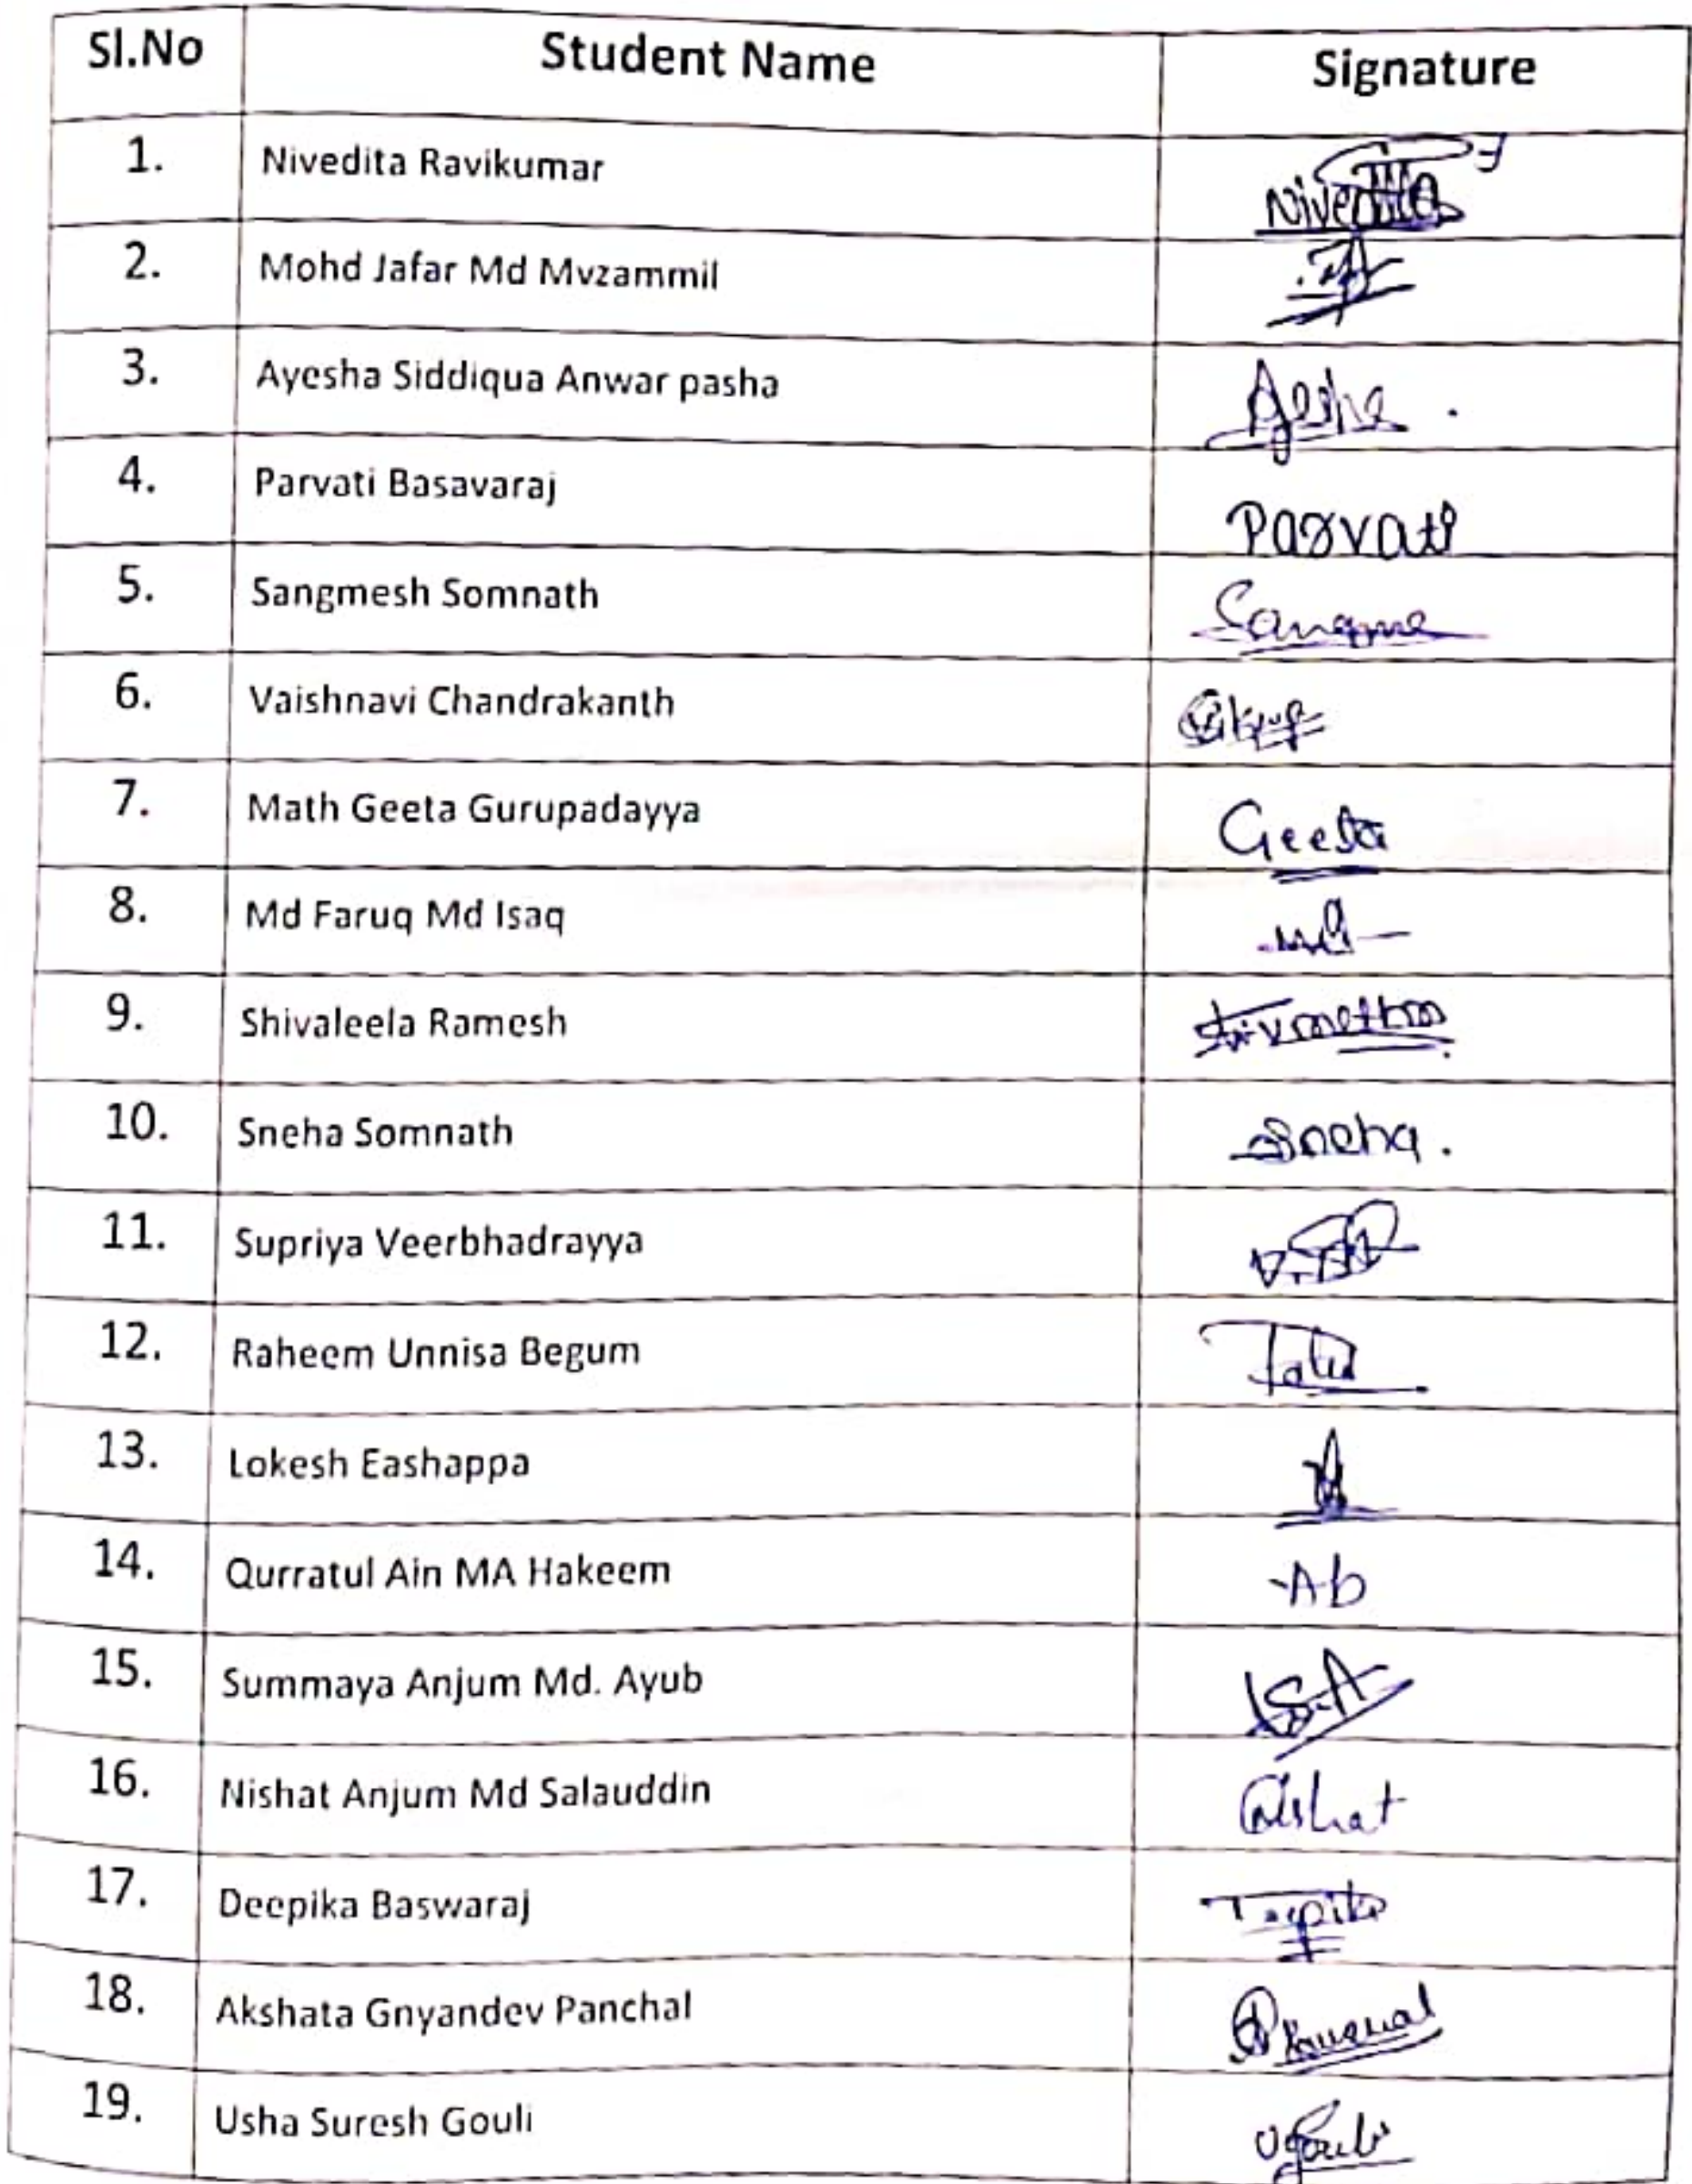 Sl.No Student Name Signature
1. Nivedita Ravikumar Nivedita
2. Mohd Jafar Md Mvzammil
3. Ayesha Siddiqua Anwar pasha
4. Parvati Basavaraj Parvati
5. Sangmesh Somnath Sangme
6. Vaishnavi Chandrakanth
7. Math Geeta Gurupadayya Geeta
8. Md Faruq Md Isaq
9. Shivaleela Ramesh
10. Sneha Somnath Sneha.
11. Supriya Veerbhadrayya
12. Raheem Unnisa Begum
13. Lokesh Eashappa
14. Qurratul Ain MA Hakeem Ab
15. Summaya Anjum Md. Ayub
16. Nishat Anjum Md Salauddin Nishat
17. Deepika Baswaraj
18. Akshata Gnyandev Panchal
19. Usha Suresh Gouli UGouli